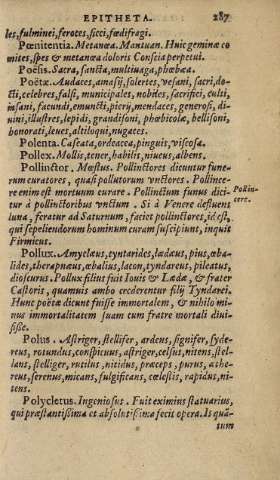 EPITHETA. 287
les, fulminei, ferotes, sicci, fœdifragi.
Pœnitentia. Metanœa. Mantuan. Huic geminæ co
mites, spes & metanœa doloris Conscia perpetui.
Poësis. Sacra, sancta, multiuaga, phœbæa.
Poëtæ. Audaces, amasij, solertes, vesani, sacri, do-
cti, celebres, falsi, municipales, nobiles, sacrifici, culti,
insani, facundi, emuncti, pierij, mendaces, generosi, di-
uini, illustres, lepidi, grandisoni, phœbicolæ, bellisoni,
honorati, leues, altiloqui, nugaces.
Polenta. Caseata, ordeacea, pinguis, viscosa.
Pollex. Mollis, tener, habilis, niueus, albens.
Pollinctor. Mœstus. Pollinctores dicuntur fune-
rum curatores, quasi pollutorum vnctores. Pollince-
re enim est mortuum curare. Pollinctum funus dici-
tur à pollinctoribus vnctum. Si à Venere defluens
luna, feratur ad Saturnum, faciet pollinctores, id est,
qui sepeliendorum hominum curam suscipiunt, inquit
Firmicus.
Pollin-
cere.
Pollux. Amyclæus, tyntarides, ledæus, pius, œba-
lides, therapnæus, œbalius, lacon, tyndareus, pileatus,
dioscurus. Pollux filius fuit Iouis & Ledæ, & frater
Castoris, quamuis ambo crederentur filij Tynderei.
Hunc poëtæ dicunt fuisse immortalem, & nihilo mi-
nus immortalitatem suam cum fratre mortali diui-
sisse.
Polus. Astriger, stellifer, ardens, signifer, syde-
reus, rotundus, conspicuus, astriger, celsus, nitens, stel-
lans, stelliger, rutilus, nitidus, præceps, purus, æthe-
reus, serenus, micans, fulgificans, cœlestis, rapidus, ni-
tens.
Polycletus. Ingeniosus. Fuit eximius statuarius,
qui præstantissima et absolutissima fecit opera. Is quū-
tum